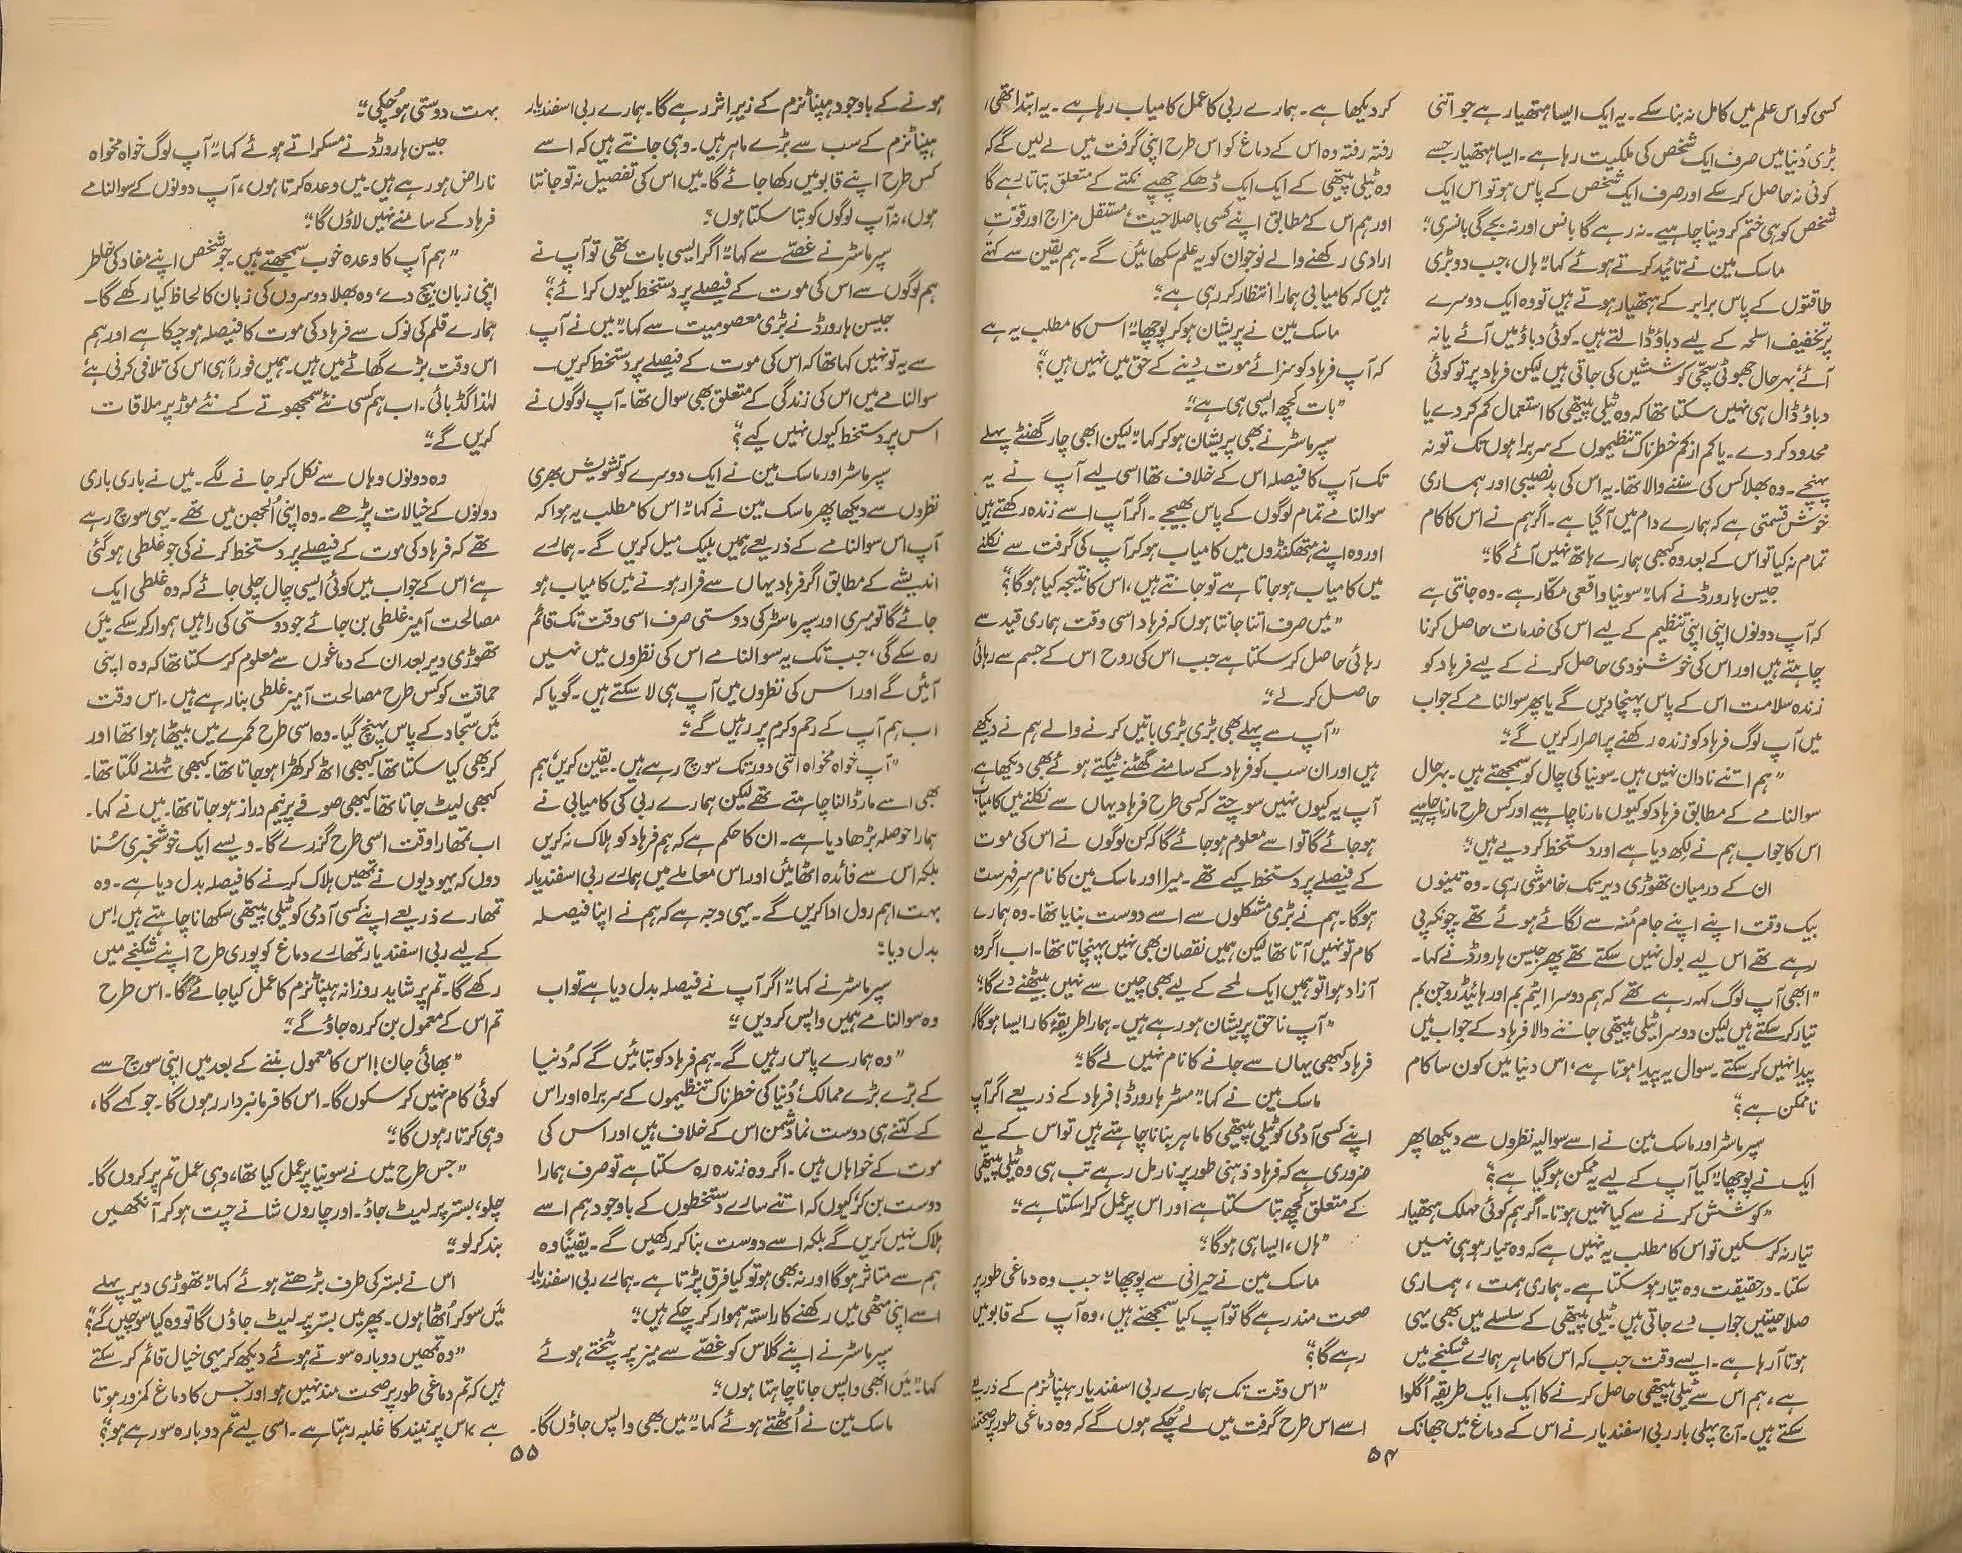 کسی کو اس علم میں کامل نہ بنا سکے۔ یہ ایک ایسا ہتھیار ہے جو اتنی
بڑی دُنیا میں صرف ایک شخص کی ملکیت رہا ہے۔ ایسا ہتھیار جسے
کوئی نہ حاصل کر سکے اور صرف ایک شخص کے پاس ہو تو اس ایک
شخص کو ہی ختم کر دینا چاہیے۔ نہ رہے گا بانس اور نہ بجے گی بانسری؛"
ماسک مین نے تائید کرتے ہوئے کہا "ہاں، جب دو بڑی
طاقتوں کے پاس برابر کے ہتھیار ہوتے ہیں تو وہ ایک دوسرے
پر تخفیف اسلحہ کے لیے دباؤ ڈالتے ہیں۔ کوئی دباؤ میں آئے یا نہ
آئے، بہرحال جھوٹی سچی کوششیں کی جاتی ہیں لیکن فرہاد پر تو کوئی
دباؤ ڈال ہی نہیں سکتا تھا کہ وہ ٹیلی پیتھی کا استعمال کم کر دے یا
محدود کر دے۔ یا کم از کم خطرناک تنظیموں کے سربراہوں تک تو نہ
پہنچے۔ وہ بھلا کس کی سننے والا تھا۔ یہ اس کی بدنصیبی اور ہماری
خوش قسمتی ہے کہ ہمارے دام میں آ گیا ہے۔ اگر ہم نے اس کا کام
تمام نہ کیا تو اس کے بعد وہ کبھی ہمارے ہاتھ نہیں آئے گا"
جیسن ہارورڈ نے کہا "سونیا واقعی مکار ہے۔ وہ جانتی ہے
کہ آپ دونوں اپنی اپنی تنظیم کے لیے اس کی خدمات حاصل کرنا
چاہتے ہیں اور اس کی خوشنودی حاصل کرنے کے لیے فرہاد کو
زندہ سلامت اس کے پاس پہنچا دیں گے یا پھر سوالنامے کے جواب
میں آپ لوگ فرہاد کو زندہ رکھنے پر اصرار کریں گے"
"ہم اتنے نادان نہیں ہیں۔ سونیا کی چال کو سمجھتے ہیں۔ بہرحال
سوالنامے کے مطابق فرہاد کو کیوں مارنا چاہیے اور کس طرح مارنا چاہیے
اس کا جواب ہم نے لکھ دیا ہے اور دستخط کر دیے ہیں"
ان کے درمیان تھوڑی دیر تک خاموشی رہی۔ وہ تینوں
بیک وقت اپنے اپنے جام مُنہ سے لگائے ہوئے تھے چونکہ پی
رہے تھے اس لیے بول نہیں سکتے تھے پھر جیسن ہارورڈ نے کہا۔
"ابھی آپ لوگ کہہ رہے تھے کہ ہم دوسرا ایٹم بم اور ہائیڈروجن بم
تیار کر سکتے ہیں لیکن دوسرا ٹیلی پیتھی جاننے والا فرہاد کے جواب میں
پیدا نہیں کر سکتے۔ سوال یہ پیدا ہوتا ہے، اس دنیا میں کون سا کام
ناممکن ہے؟"
سپر ماسٹر اور ماسک مین نے اسے سوالیہ نظروں سے دیکھا پھر
ایک نے پوچھا "کیا آپ کے لیے یہ ممکن ہو گیا ہے؟"
"کوشش کرنے سے کیا نہیں ہوتا۔ اگر ہم کوئی مہلک ہتھیار
تیار نہ کر سکیں تو اس کا مطلب یہ نہیں ہے کہ وہ تیار ہو ہی نہیں
سکتا۔ درحقیقت وہ تیار ہو سکتا ہے۔ ہماری ہمت، ہماری
صلاحیتیں جواب دے جاتی ہیں ٹیلی پیتھی کے سلسلے میں بھی یہی
ہوتا آ رہا ہے۔ ایسے وقت جب کہ اس کا ماہر ہمارے شکنجے میں
ہے، ہم اس سے ٹیلی پیتھی حاصل کرنے کا ایک ایک طریقہ اُگلوا
سکتے ہیں۔ آج پہلی بار ربی اسفندیار نے اس کے دماغ میں جھانک
کر دیکھا ہے۔ ہمارے ربی کا عمل کامیاب رہا ہے۔ یہ ابتدا تھی،
رفتہ رفتہ وہ اس کے دماغ کو اس طرح اپنی گرفت میں لے لیں گے کہ
وہ ٹیلی پیتھی کے ایک ایک ڈھکے چھپے نکتے کے متعلق بتاتا رہے گا
اور ہم اس کے مطابق اپنے کسی باصلاحیت، مستقل مزاج اور قوتِ
ارادی رکھنے والے نوجوان کو یہ علم سکھائیں گے۔ ہم یقین سے کہتے
ہیں کہ کامیابی ہمارا انتظار کر رہی ہے"
ماسک مین نے پریشان ہو کر پوچھا "اس کا مطلب یہ ہے
کہ آپ فرہاد کو سزائے موت دینے کے حق میں نہیں ہیں؟"
"بات کچھ ایسی ہی ہے"
سپر ماسٹر نے بھی پریشان ہو کر کہا "لیکن ابھی چار گھنٹے پہلے
تک آپ کا فیصلہ اس کے خلاف تھا اسی لیے آپ نے یہ
سوالنامے تمام لوگوں کے پاس بھیجے۔ اگر آپ اسے زندہ رکھتے ہیں
اور وہ اپنے ہتھکنڈوں میں کامیاب ہو کر آپ کی گرفت سے نکلنے
میں کامیاب ہو جاتا ہے تو جانتے ہیں، اس کا نتیجہ کیا ہو گا؟"
"میں صرف اتنا جانتا ہوں کہ فرہاد اسی وقت ہماری قید سے
رہائی حاصل کر سکتا ہے جب اس کی روح اس کے جسم سے رہائی
حاصل کر لے"
"آپ سے پہلے بھی بڑی بڑی باتیں کرنے والے ہم نے دیکھے
ہیں اور ان سب کو فرہاد کے سامنے گھٹنے ٹیکتے ہوئے بھی دیکھا ہے،
آپ یہ کیوں نہیں سوچتے کہ کسی طرح فرہاد یہاں سے نکلنے میں کامیاب
ہو جائے گا تو اسے معلوم ہو جائے گا کہ کن لوگوں نے اس کی موت
کے فیصلے پر دستخط کیے تھے۔ میرا اور ماسک مین کا نام سرِفہرست
ہو گا۔ ہم نے بڑی مشکلوں سے اسے دوست بنایا تھا۔ وہ ہمارے
کام تو نہیں آتا تھا لیکن ہمیں نقصان بھی نہیں پہنچاتا تھا۔ اب اگر وہ
آزاد ہوا تو ہمیں ایک لمحے کے لیے بھی چین سے نہیں بیٹھنے دے گا"
"آپ ناحق پریشان ہو رہے ہیں۔ ہمارا طریقۂ کار ایسا ہو گا کہ
فرہاد کبھی یہاں سے جانے کا نام نہیں لے گا"
ماسک مین نے کہا "مسٹر ہارورڈ! فرہاد کے ذریعے اگر آپ
اپنے کسی آدمی کو ٹیلی پیتھی کا ماہر بنانا چاہتے ہیں تو اس کے لیے
ضروری ہے کہ فرہاد ذہنی طور پر نارمل رہے تب ہی وہ ٹیلی پیتھی
کے متعلق کچھ بتا سکتا ہے اور اس پر عمل کرا سکتا ہے"
"ہاں، ایسا ہی ہو گا"
ماسک مین نے حیرانی سے پوچھا "جب وہ دماغی طور پر
صحت مند رہے گا تو آپ کیا سمجھتے ہیں، وہ آپ کے قابو میں
رہے گا؟"
"اس وقت تک ہمارے ربی اسفندیار ہپناٹزم کے ذریعے
اسے اس طرح گرفت میں لے چکے ہوں گے کہ وہ دماغی طور پر صحتمند
۵۴
ہونے کے باوجود ہپناٹزم کے زیرِ اثر رہے گا۔ ہمارے ربی اسفندیار
ہپناٹزم کے سب سے بڑے ماہر ہیں۔ وہی جانتے ہیں کہ اسے
کس طرح اپنے قابو میں رکھا جائے گا۔ میں اس کی تفصیل نہ تو جانتا
ہوں، نہ آپ لوگوں کو بتا سکتا ہوں"
سپر ماسٹر نے غصے سے کہا "اگر ایسی بات تھی تو آپ نے
ہم لوگوں سے اس کی موت کے فیصلے پر دستخط کیوں کرائے؟"
جیسن ہارورڈ نے بڑی معصومیت سے کہا "میں نے آپ
سے یہ تو نہیں کہا تھا کہ اس کی موت کے فیصلے پر دستخط کریں۔
سوالنامے میں اس کی زندگی کے متعلق بھی سوال تھا۔ آپ لوگوں نے
اس پر دستخط کیوں نہیں کیے؟"
سپر ماسٹر اور ماسک مین نے ایک دوسرے کو تشویش بھری
نظروں سے دیکھا پھر ماسک مین نے کہا "اس کا مطلب یہ ہوا کہ
آپ اس سوالنامے کے ذریعے ہمیں بلیک میل کریں گے۔ ہمارے
اندیشے کے مطابق اگر فرہاد یہاں سے فرار ہونے میں کامیاب ہو
جائے گا تو میری اور سپر ماسٹر کی دوستی صرف اسی وقت تک قائم
رہ سکے گی، جب تک یہ سوالنامے اس کی نظروں میں نہیں
آئیں گے اور اس کی نظروں میں آپ ہی لا سکتے ہیں۔ گویا کہ
اب ہم آپ کے رحم و کرم پر رہیں گے"
"آپ خواہ مخواہ اتنی دور تک سوچ رہے ہیں۔ یقین کریں، ہم
بھی اسے مار ڈالنا چاہتے تھے لیکن ہمارے ربی کی کامیابی نے
ہمارا حوصلہ بڑھا دیا ہے۔ ان کا حکم ہے کہ ہم فرہاد کو ہلاک نہ کریں
بلکہ اس سے فائدہ اٹھائیں اور اس معاملے میں ہمارے ربی اسفندیار
بہت اہم رول ادا کریں گے۔ یہی وجہ ہے کہ ہم نے اپنا فیصلہ
بدل دیا"
سپر ماسٹر نے کہا "اگر آپ نے فیصلہ بدل دیا ہے تو اب
وہ سوالنامے ہمیں واپس کر دیں"
"وہ ہمارے پاس رہیں گے۔ ہم فرہاد کو بتائیں گے کہ دُنیا
کے بڑے بڑے ممالک، دُنیا کی خطرناک تنظیموں کے سربراہ اور اس
کے کتنے ہی دوست نما دشمن اس کے خلاف ہیں اور اس کی
موت کے خواہاں ہیں۔ اگر وہ زندہ رہ سکتا ہے تو صرف ہمارا
دوست بن کر، کیوں کہ اتنے سارے دستخطوں کے باوجود ہم اسے
ہلاک نہیں کریں گے بلکہ اسے دوست بنا کر رکھیں گے۔ یقیناً وہ
ہم سے متاثر ہو گا اور نہ بھی ہو تو کیا فرق پڑتا ہے۔ ہمارے ربی اسفندیار
اسے اپنی مٹھی میں رکھنے کا راستہ ہموار کر چکے ہیں"
سپر ماسٹر نے اپنے گلاس کو غصے سے میز پر پٹختے ہوئے
کہا "میں ابھی واپس جانا چاہتا ہوں"
ماسک مین نے اُٹھتے ہوئے کہا "میں بھی واپس جاؤں گا۔
بہت دوستی ہو چُکی"
جیسن ہارورڈ نے مسکراتے ہوئے کہا "آپ لوگ خواہ مخواہ
ناراض ہو رہے ہیں۔ میں وعدہ کرتا ہوں، آپ دونوں کے سوالنامے
فرہاد کے سامنے نہیں لاؤں گا"
"ہم آپ کا وعدہ خوب سمجھتے ہیں۔ جو شخص اپنے مفاد کی خاطر
اپنی زبان بیچ دے، وہ بھلا دوسروں کی زبان کا لحاظ کیا رکھے گا۔
ہمارے قلم کی نوک سے فرہاد کی موت کا فیصلہ ہو چکا ہے اور ہم
اس وقت بڑے گھاٹے میں ہیں۔ ہمیں فوراً ہی اس کی تلافی کرنی ہے
لہٰذا گڈ بائی۔ اب ہم کسی نئے سمجھوتے کے نئے موڑ پر ملاقات
کریں گے"
وہ دونوں وہاں سے نکل کر جانے لگے۔ میں نے باری باری
دونوں کے خیالات پڑھے۔ وہ اپنی اُلجھن میں تھے۔ یہی سوچ رہے
تھے کہ فرہاد کی موت کے فیصلے پر دستخط کرنے کی جو غلطی ہو گئی
ہے، اس کے جواب میں کوئی ایسی چال چلی جائے کہ وہ غلطی ایک
مصالحت آمیز غلطی بن جائے جو دوستی کی راہیں ہموار کر سکے میں
تھوڑی دیر بعد ان کے دماغوں سے معلوم کر سکتا تھا کہ وہ اپنی
حماقت کو کس طرح مصالحت آمیز غلطی بنا رہے ہیں۔ اس وقت
میں سجاد کے پاس پہنچ گیا۔ وہ اسی طرح کمرے میں بیٹھا ہوا تھا اور
کر بھی کیا سکتا تھا، کبھی اٹھ کر کھڑا ہو جاتا تھا۔ کبھی ٹہلنے لگتا تھا۔
کبھی لیٹ جاتا تھا، کبھی صوفے پر نیم دراز ہو جاتا تھا۔ میں نے کہا۔
اب تمہارا وقت اسی طرح گزرے گا۔ ویسے ایک خوشخبری سُنا
دوں کہ یہودیوں نے تمہیں ہلاک کرنے کا فیصلہ بدل دیا ہے۔ وہ
تمھارے ذریعے اپنے کسی آدمی کو ٹیلی پیتھی سکھانا چاہتے ہیں، اس
کے لیے ربی اسفندیار تمھارے دماغ کو پوری طرح اپنے شکنجے میں
رکھے گا۔ تم پر شاید روزانہ ہپناٹزم کا عمل کیا جائے گا۔ اس طرح
تم اس کے معمول بن کر رہ جاؤ گے"
"بھائی جان! اس کا معمول بننے کے بعد میں اپنی سوچ سے
کوئی کام نہیں کر سکوں گا۔ اس کا فرمانبردار رہوں گا۔ جو کہے گا،
وہی کرتا رہوں گا"
"جس طرح میں نے سونیا پر عمل کیا تھا، وہی عمل تم پر کروں گا۔
چلو، بستر پر لیٹ جاؤ۔ اور چاروں شانے چت ہو کر آنکھیں
بند کر لو"
اس نے بستر کی طرف بڑھتے ہوئے کہا "تھوڑی دیر پہلے
میں سو کر اُٹھا ہوں۔ پھر میں بستر پر لیٹ جاؤں گا تو وہ کیا سوچیں گے؟"
"وہ تمھیں دوبارہ سوتے ہوئے دیکھ کر یہی خیال قائم کر سکتے
ہیں کہ تم دماغی طور پر صحت مند نہیں ہو اور جس کا دماغ کمزور ہوتا
ہے، اس پر نیند کا غلبہ رہتا ہے۔ اسی لیے تم دوبارہ سو رہے ہو؟"
۵۵